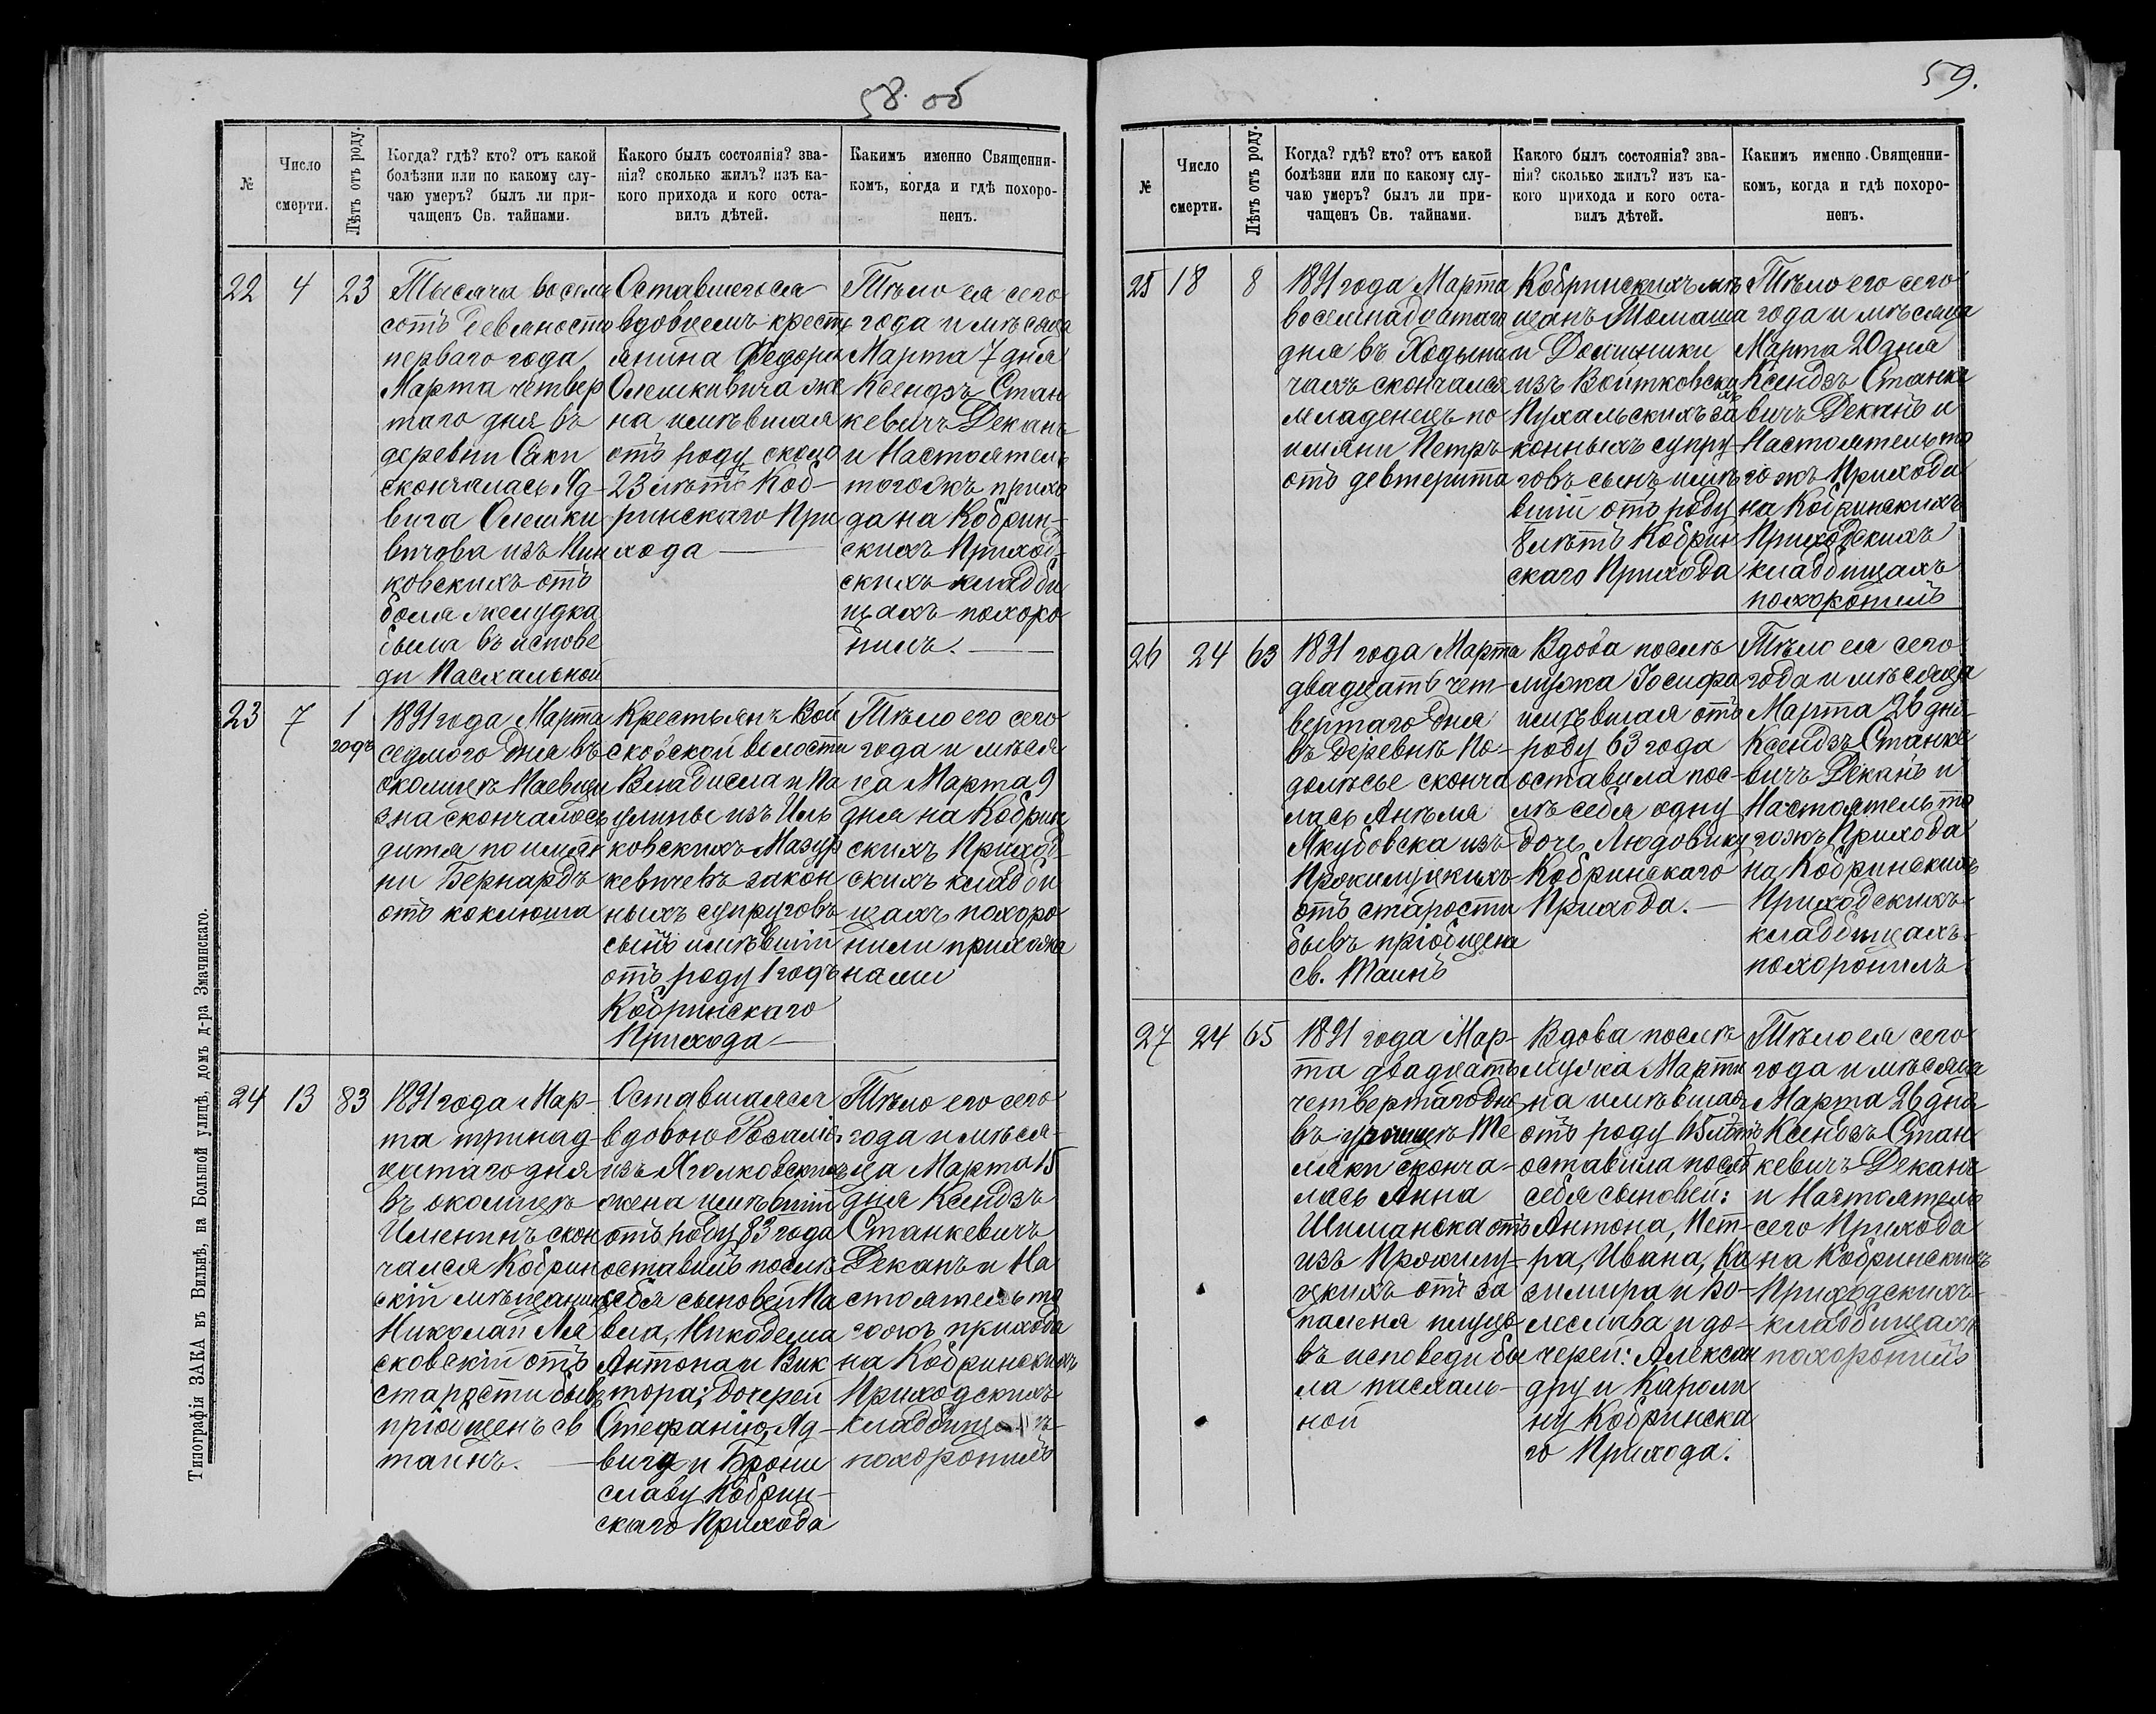 58 об
№
Число
смерти.
Лѣтъ отъ роду.
Когда? гдѣ? кто? отъ какой
болѣзни или по какому слу-
чаю умеръ? былъ ли при-
чащенъ Св. тайнами.
Какого былъ состоянія? зва-
нія? сколько жилъ? изъ ка-
кого прихода и кого оста-
вилъ дѣтей.
Какимъ именно Священни-
комъ, когда и гдѣ похоро-
ненъ.
22
4
23
Тысяча восемь
сотъ девяносто
перваго года
Марта четвер
таго дня въ
деревни Саки
скончалась Яд-
вига Олешки
вичова изъ
ковскихъ отъ
боля желудка
была въ испове
ди Пасхальной
Оставшегося
вдовцемъ кресть
янина Федора
Олешкевича же
на имѣвшая
отъ роду около
23 лѣтъ Коб-
ринскаго При
хода
Тѣло ея сего
года и мѣсяца
Марта 7 дня
Ксендзъ Стан
кевичъ Деканъ
и Настоятель
тогожъ прихо
да на Кобрин-
скихъ Приход-
скихъ кладби
щахъ похоро
нилъ.
23
7
1
годъ
1891 года Марта
седмого дня въ
околицѣ Маевщи
зна скончалось
дитя по имян
ни Бернардъ
отъ коклюша
Крестьянъ Вой
ской волости
Владисла и Па
улины изъ Иль
ковскихъ Мазур
кевичевъ закон
ныхъ супруговъ
сынъ имѣвшій
отъ роду 1 годъ
Кобринскаго
Прихода
Тѣло его сего
года и мѣся
ца Марта 9
дня на Кобрин
скихъ Приход-
скихъ кладби
щахъ похоро
нили прихожа
нами
24
13
83
1891 года Мар-
та тринад-
цатаго дня
въ околицѣ
Именинъ скон
чался Кобрин
скій мѣщанинъ
Николай Ля
сковскій отъ
старости бывъ
пріобщенъ св
таинъ.
Оставшаяся
вдовою Розалія
изъ Яголковскихъ
жена имѣвшій
отъ роду 83 года
оставилъ послѣ
себя сыновей Па
вла, Никодема
Антона и Вик
тора; дочерей
Стефанію, Яд-
вигу и Брони
славу Кобрин-
скаго Прихода
Тѣло его сего
года и мѣся-
ца Марта 15
дня Ксендзъ
Станкевичъ
Деканъ и На
стоятель то
гожъ прихода
на Кобринскихъ
Приходскихъ
кладбищахъ
похоронилъ
Типографія ЗАКА въ Вильнѣ, на Большой улицѣ, домъ д-ра Змачинскаго.
59.
№
Число
смерти.
Лѣтъ отъ роду.
Когда? гдѣ? кто? отъ какой
болѣзни или по какому слу-
чаю умеръ? былъ ли при-
чащенъ Св. тайнами.
Какого былъ состоянія? зва-
нія? сколько жилъ? изъ ка-
кого прихода и кого оста-
вилъ дѣтей.
Какимъ именно Священни-
комъ, когда и гдѣ похоро-
ненъ.
25
18
8
1891 года Марта
восемнадцатаго
дня въ Ходыни
чахъ скончался
младенецъ по
имяни Петръ
отъ девтерита
Кобринскихъ мѣ
щанъ Томаша
и Доминики
изъ Войтковскихъ
Пухальскихъ за
конныхъ супру-
говъ сынъ имѣ
вшій отъ роду
8 лѣтъ Кобрин
скаго Прихода
Тѣло его сего
года и мѣсяца
Марта 20 дня
Ксендзъ Станке
вичъ Деканъ и
Настоятель то
гожъ Прихода
на Кобринскихъ
Приходскихъ
кладбищахъ
похоронилъ
26
24
63
1891 года Марта
двадцать чет-
вертаго дня
въ деревнѣ По-
долѣсье сконча
лась Анѣля
Якубовска изъ
Прокимуцкихъ
отъ старости
бывъ пріобщена
св. Таинъ
Вдова послѣ
мужа Іосифа
имѣвшая отъ
роду 63 года
оставила пос-
лѣ себя одну
дочь Людовику
Кобринскаго
Прихода.
Тѣло ея сего
года и мѣсяца
Марта 26 дня
Ксендзъ Станке
вичъ Деканъ и
Настоятель то
гожъ Прихода
на Кобринскихъ
Приходскихъ
кладбищахъ
похоронилъ
27
24
65
1891 года Мар-
та двадцать
четвертаго дня
въ урочищѣ Те
ляки сконча-
лась Анна
Шиманска отъ
изъ Прокиму-
цкихъ отъ за
паленя плуцъ
въ исповеди бы
ла пасхаль-
ной
Вдова послѣ
мужа Марти
на имѣвшая
отъ роду 65 лѣтъ
оставила послѣ
себя сыновей:
Антона, Пет-
ра, Ивана, Ка
зимира и Бо-
леслава и до-
черей: Алексан
дру и Кароли
ну Кобринска
го Прихода.
Тѣло ея сего
года и мѣсяца
Марта 26 дня
Ксендзъ Стан
кевичъ Деканъ
и Настоятель
сего Прихода
на Кобринскихъ
Приходскихъ
кладбищахъ
похоронилъ